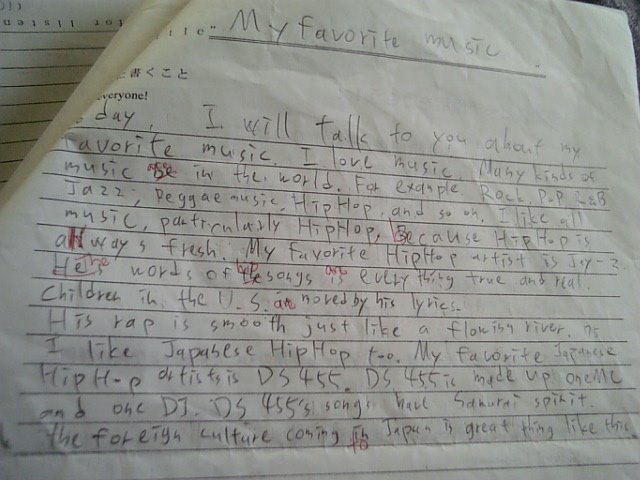 My favorite music
書くこと
everyone!
day, I will talk to you about my
favorite music. I love music. Many kinds of
music are in the world. For example Rock, Pop, R&B
Jazz, Peggae music, HipHop, and so on. I like all
music, particularly HipHop, Because HipHop is
always fresh. My favorite HipHop artist is Jay-Z.
The words of songs are everything true and real.
Children in the U.S. are moved by his lyrics.
His rap is smooth just like a flowing river.
I like Japanese HipHop too. My favorite Japanese
HipHop artists is DS 455. DS 455 is made up one MC
and one DJ. DS 455's songs have Samurai spirit.
the foreign culture coming to Japan is great thing like this.